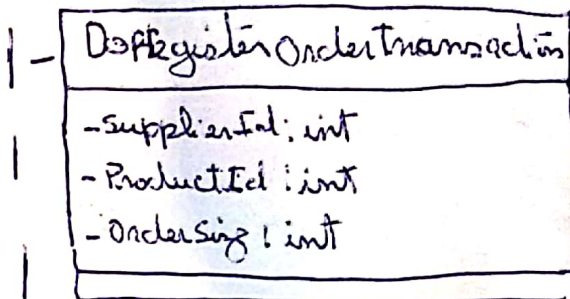 DoRegisterOrderTransaction
- SupplierId : int
- ProductId : int
- OrderSize : int